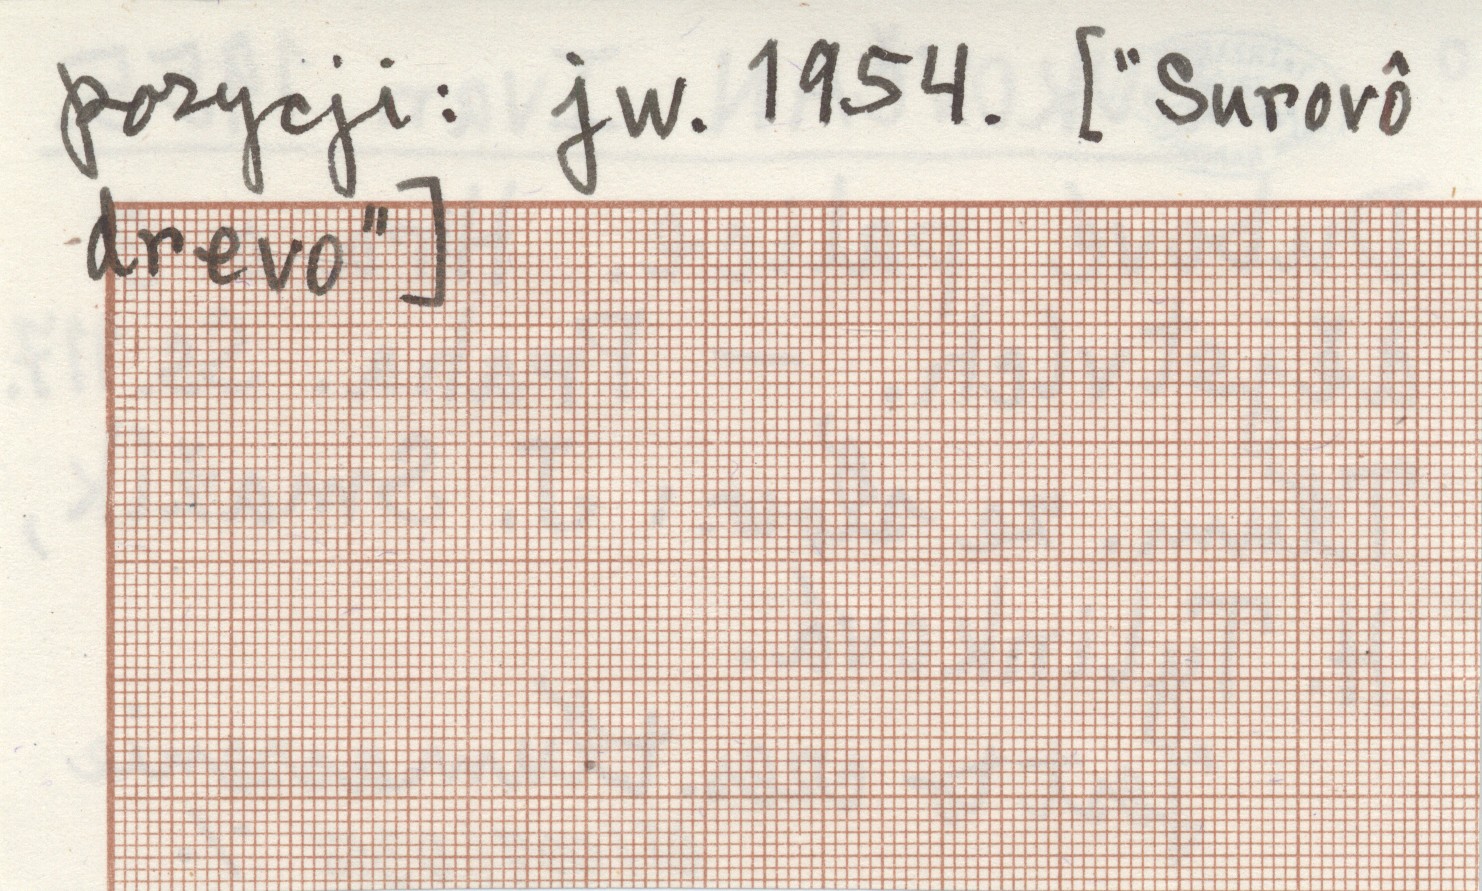 pozycji: jw. 1954. ["Surovô
drevo"]